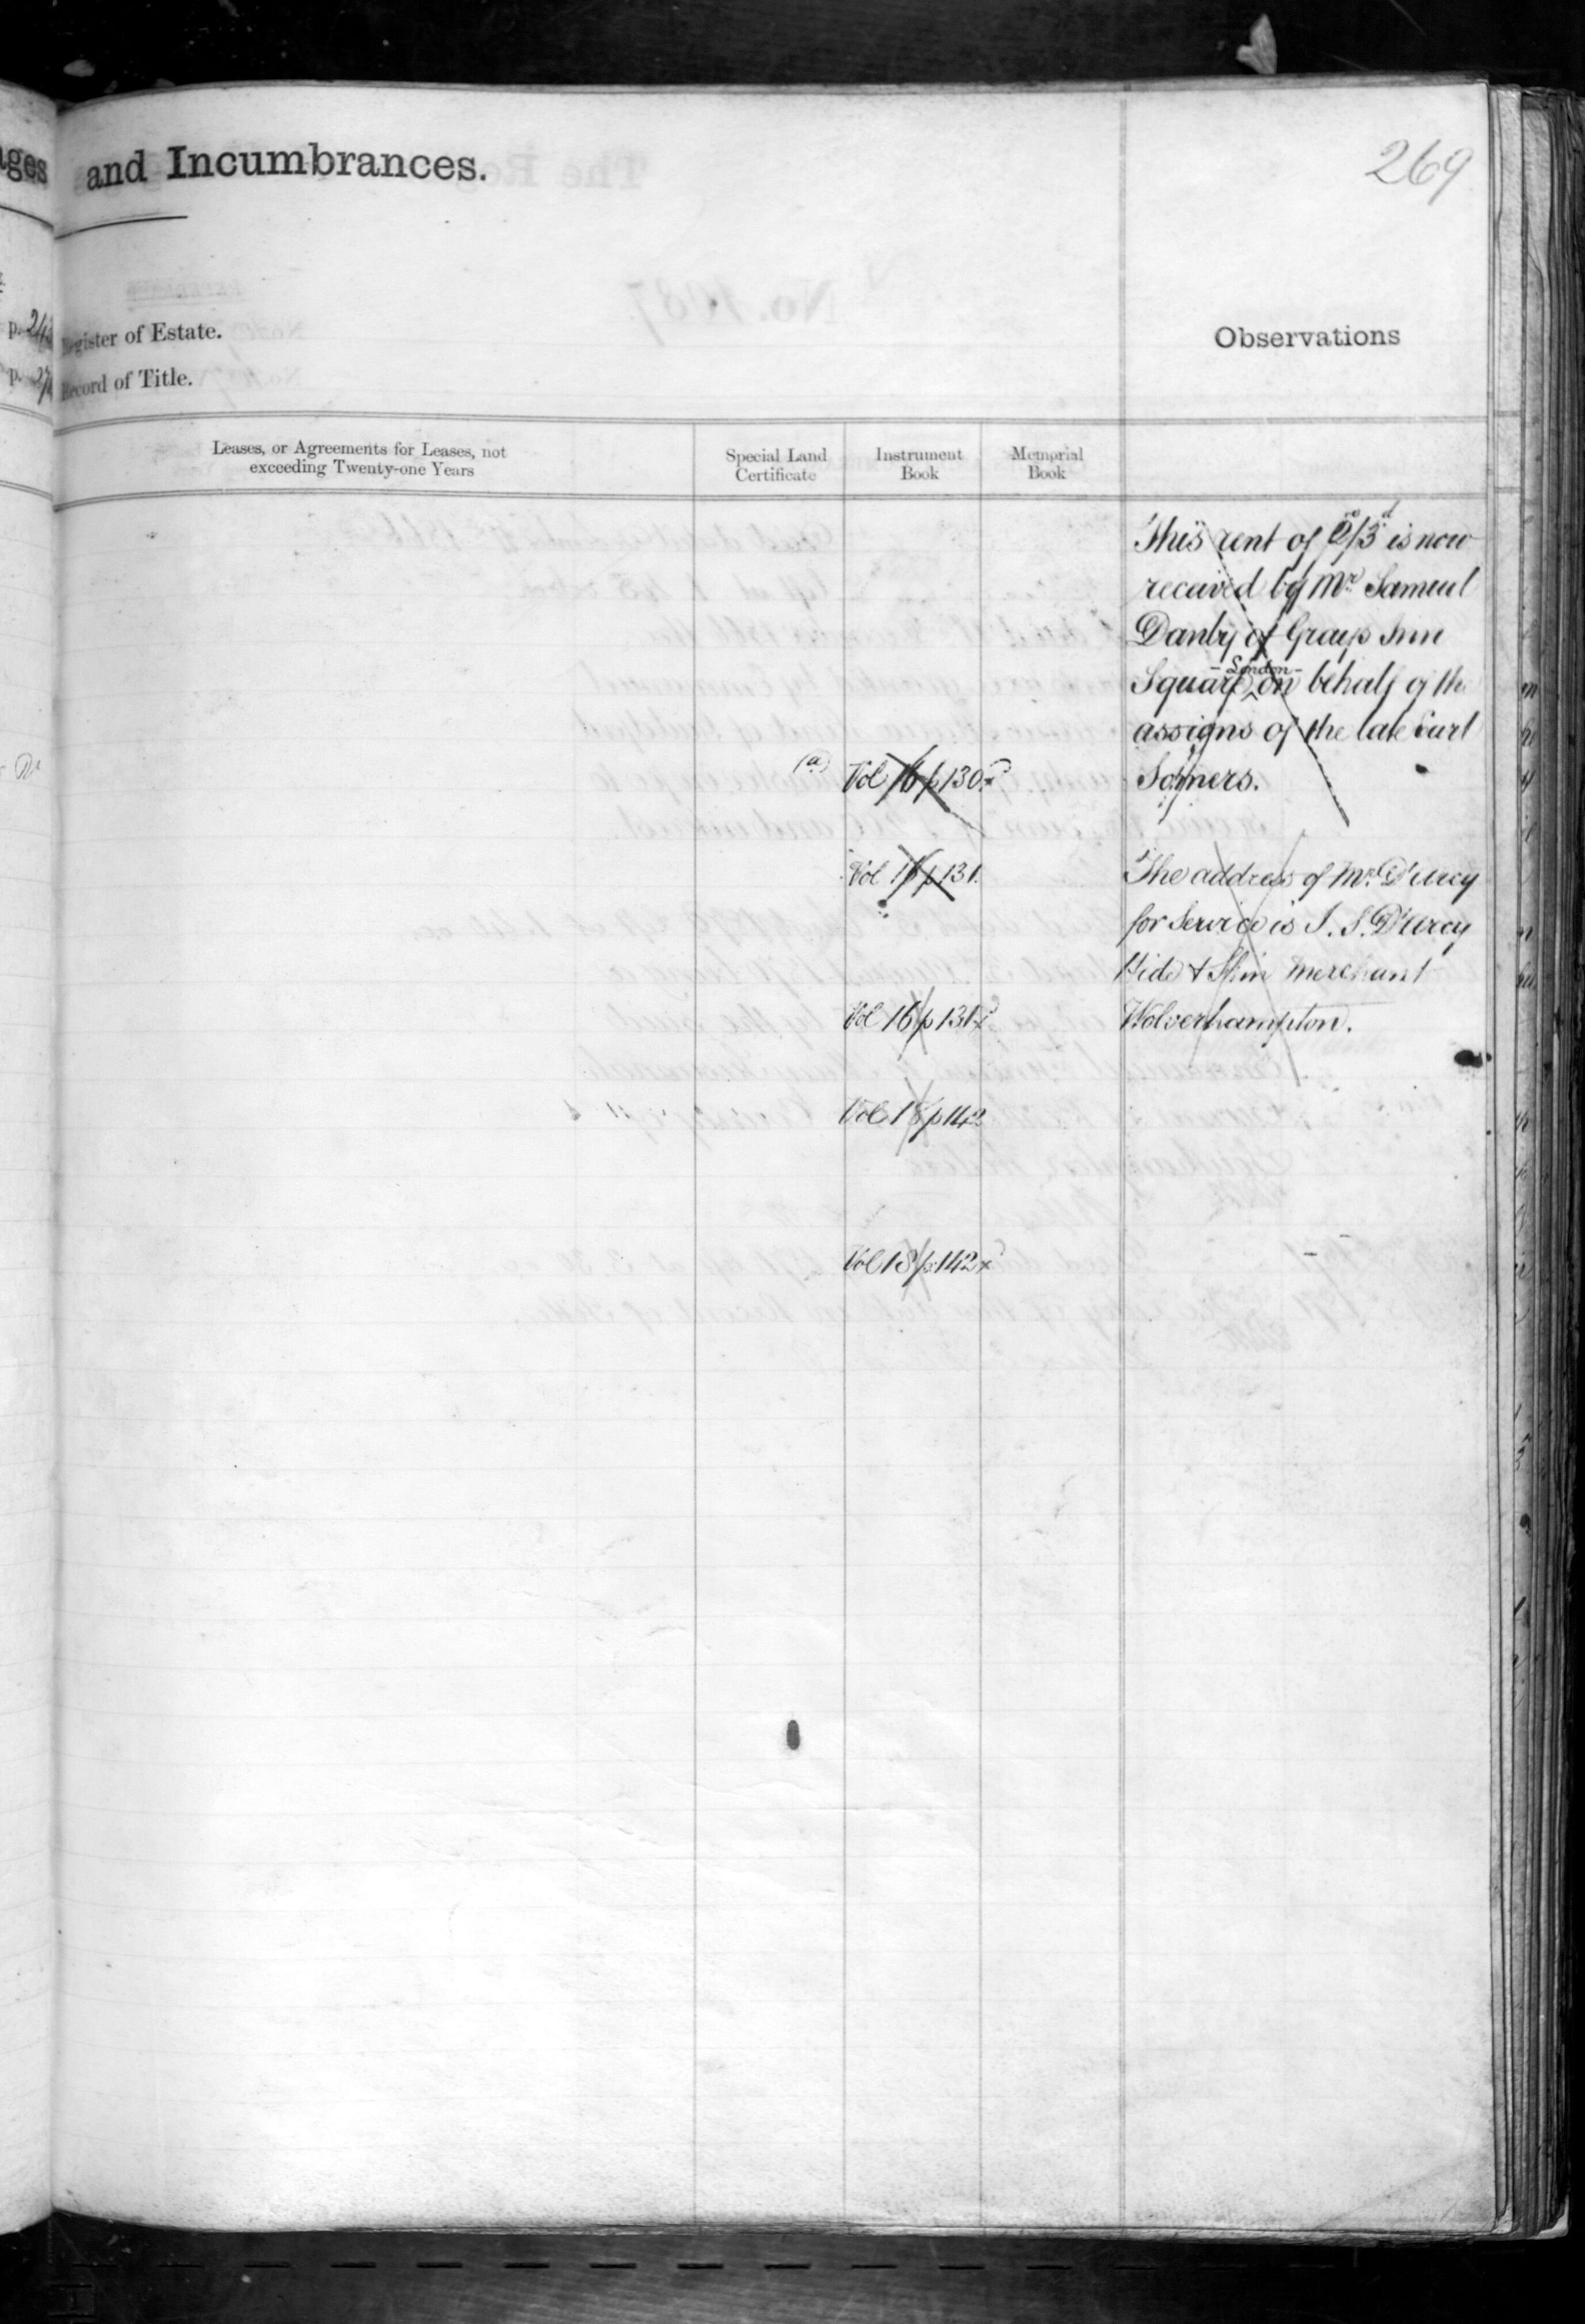 and Incumbrances.
269
Register of Estate.
Record of Title.
Observations
Leases, or Agreements for Leases, not
exceeding Twenty-one Years
Special Land
Certificate
Instrument
Book
Memorial
Book
This rent of 2s/3d is now
received by Mr. Samuel
Danby of Grays Inn
Square - London - on behalf of the
assigns of the late Earl
Somers.
(a) Vol 16 p 130 x
Vol 16 p 131.
Vol 16 p 131 x
Vol 18 p 142
Vol 18 p 142 x
The address of Mr. D'Urcy
for Service is J. S. D'Urcy
Hide & Skin Merchant
Wolverhampton.